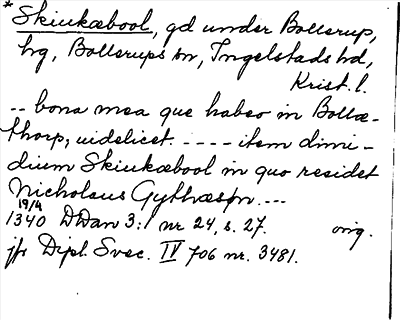 * Skiukæbool, gd under Bollerup,
hg, Bollerups sn, Ingelstads hd,
Krist. l.
-- bona mea que habeo in Bollæ-
thorp, uidelicet ---- item dimi-
dium Skiukæbool in quo residet
Nicholaus Gythæssøn ---
19/4
1340 DDan 3:1 nr 24, s. 27. orig.
jfr Dipl. Svec. IV 706 nr. 3481.